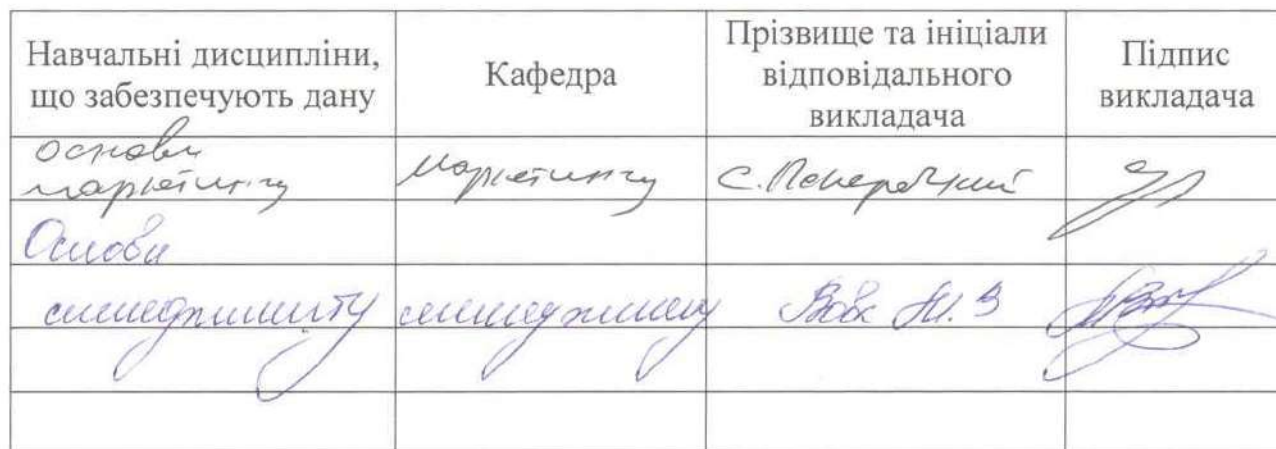 Навчальні дисципліни,
що забезпечують дану
Кафедра
Прізвище та ініціали
відповідального
викладача
Підпис
викладача
основи
маркетингу
маркетингу
Основи
менеджменту
менеджменту
Вовк